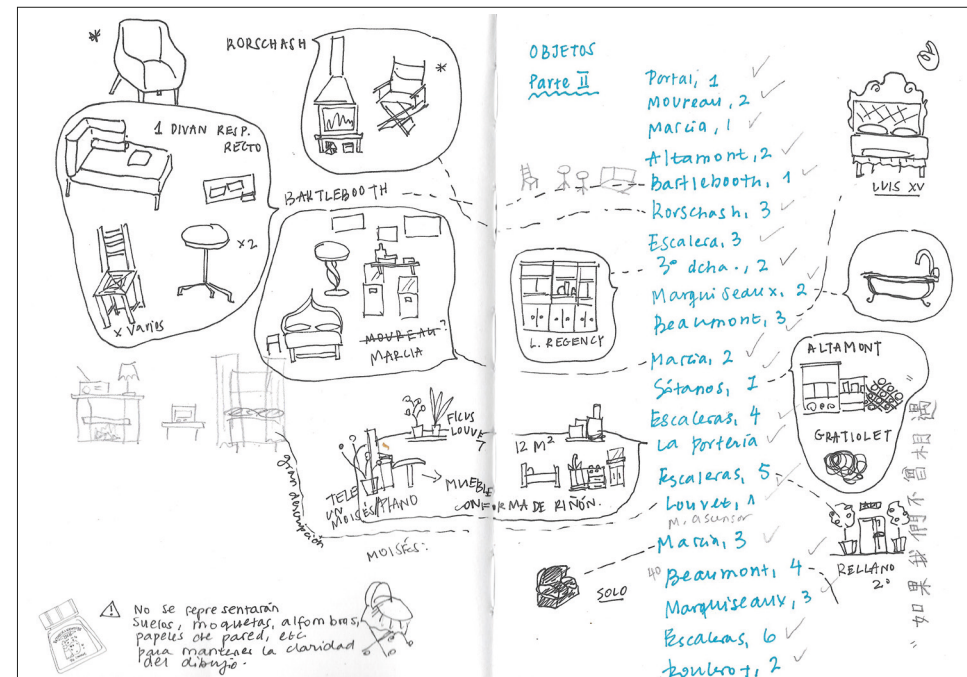 *
RORSCHASH
*
1 DIVAN RESP.
RECTO
x2
x varios
BARTLEBOOTH
MOUREAU?
MARCIA
FICUS
LOUVET
TELE
UN
MOISÉS/PIANO
MUEBLE
CON FORMA DE RIÑÓN.
12 M²
gran descripción
MOISÉS:
⚠ No se representarán
suelos, moquetas, alfombras,
papeles de pared, etc
para mantener la claridad
del dibujo.
OBJETOS
Parte II
Portal, 1 ✓
Moureau, 2 ✓
Marcia, 1 ✓
Altamont, 2 ✓
Bartlebooth, 1 ✓
Rorschash, 3 ✓
Escalera, 3 ✓
3º dcha., 2 ✓
Marquiseaux, 2 ✓
Beaumont, 3 ✓
Marcia, 2 ✓
Sótanos, 1 ✓
Escaleras, 4 ✓
La portería ✓
Escaleras, 5 ✓
Louvet, 1 ✓
M. asensor
Marcia, 3 ✓
40 Beaumont, 4 ✓
Marquiseaux, 3 ✓
Escaleras, 6 ✓
Foulerot, 2 ✓
L. REGENCY
SOLO
LUIS XV
ALTAMONT
GRATIOLET
RELLANO
2º
如果我們不會相遇